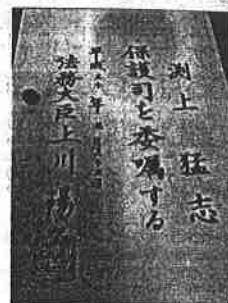 渕上 猛志
保護司を委嘱する
平成三十年
法務大臣 上川陽子